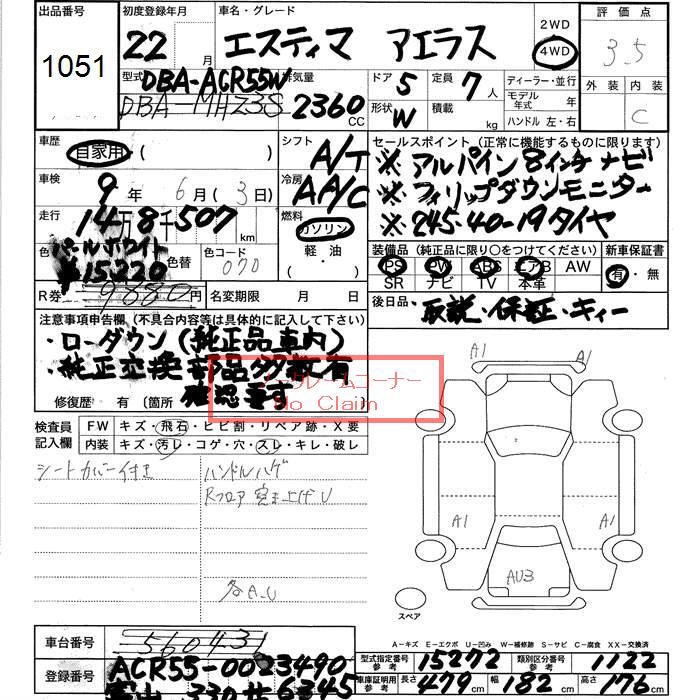 出品番号 初度登録年月 車名・グレード 評価点
1051 22 月 エスティマ アエラス 2WD 4WD 3.5
外装 内装
C
型式 DBA-ACR55W 排気量 ドア 5 定員 7 人 ディーラー・並行
DBA-MHZ3S 2360 CC 形状 W 積載 kg モデル年式 年
ハンドル 左・右
車歴 自家用 ( ) シフト A/T セールスポイント (正常に機能するものに限ります)
※アルパイン8インチナビ
車検 9年 6月 (3日) 冷房 AA/C ※フィリップダウンモニター
走行 14万8千507 km 燃料 ガソリン ※245-40-19タイヤ
軽・油
( )
色 パールホワイト 色替 色コード 070 装備品 (純正品に限り○をつけてください) 新車保証書
¥15220 PS PW ABS エアB AW 有・無
SR ナビ TV 本革
R券 9880円 名変期限 月 日 後日品・取説・保証・キィー
注意事項申告欄 (不具合内容等は具体的に記入して下さい)
・ローダウン(純正品車内)
・純正交換部品多数有
確認要す
ノークレームコーナー
No Claim
修復歴 有 〔箇所
検査員記入欄 FW キズ・飛石・ヒビ割・リペア跡・X要
内装 キズ・汚レ・コゲ・穴・スレ・キレ・破レ
シートカバー付き ハンドルハゲ
Rフロア突き上げU
各A.U
A1 A1
A1 A1
AU3
スペア
A-キズ E-エクボ U-凹み W-補修跡 S-サビ C-腐食 XX-交換済
車台番号 560431
ACR55-0023490 型式指定番号 参考 15272 類別区分番号 参考 1122
登録番号 富山 330 せ 6345 車庫証明用 参考 長さ 479 cm 幅 182 cm 高さ 176 cm